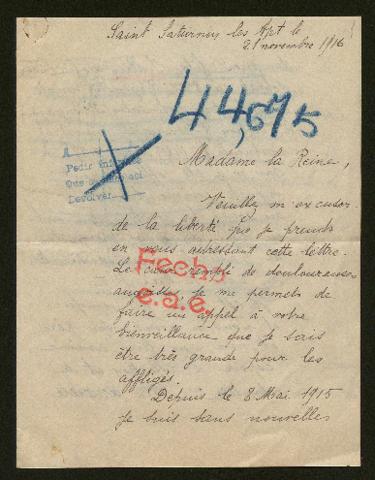 Saint Saturnin les Apt le
21 novembre 1916
44,675
A
Pedir
Que
Devolver
Madame la Reine,
Veuillez m'excuser
de la liberté que je prends
en vous adressant cette lettre.
Le cœur rempli de douloureuses
angoisses je me permets de
Fecho
e.a.e.
faire un appel à votre
bienveillance que je sais
être très grande pour les
affligés.
Depuis le 8 Mai 1915
je suis sans nouvelles